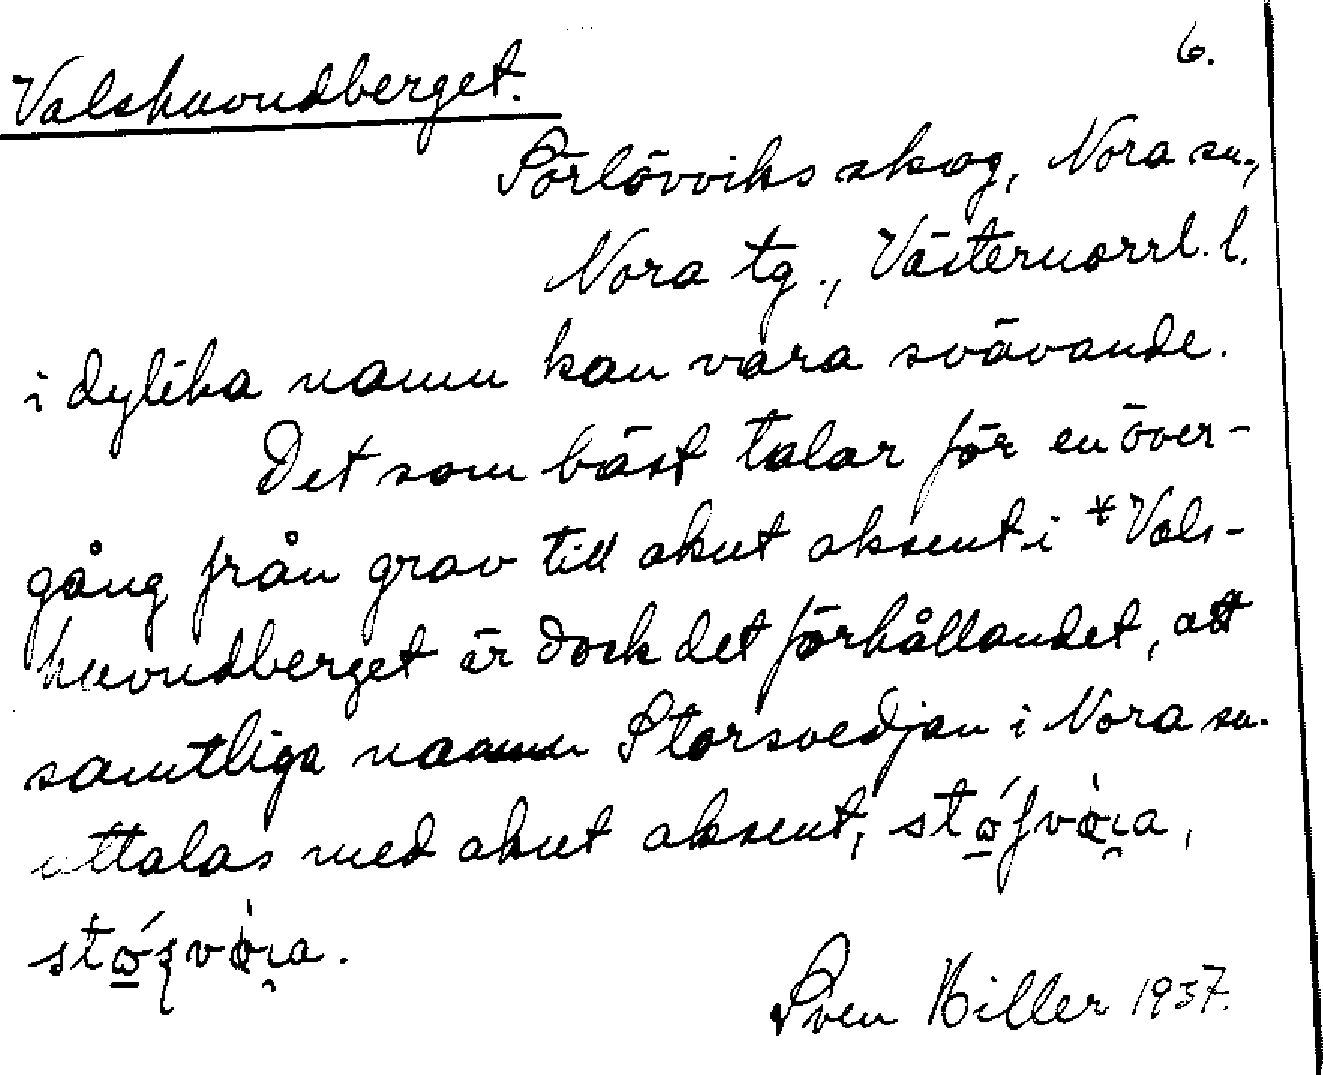 6.
Valshuvudberget.
Sörlövviks skog, Nora sn.,
Nora tg., Västernorrl. l.
i dylika namn kan vara svävande.
Det som bäst talar för en över-
gång från grav till akut aksent i *Vals-
huvudberget är dock det förhållandet, att
samtliga namn Storsvedjan i Nora sn.
uttalas med akut aksent,
Sven Hiller 1937.